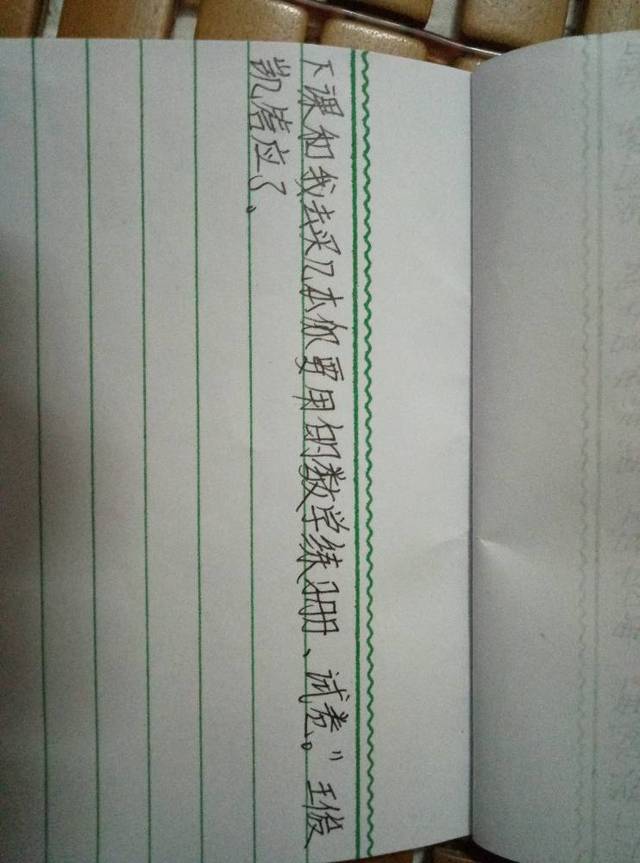 下课和我去买几本你要用的数学练习册、试卷。”王俊
凯答应了。